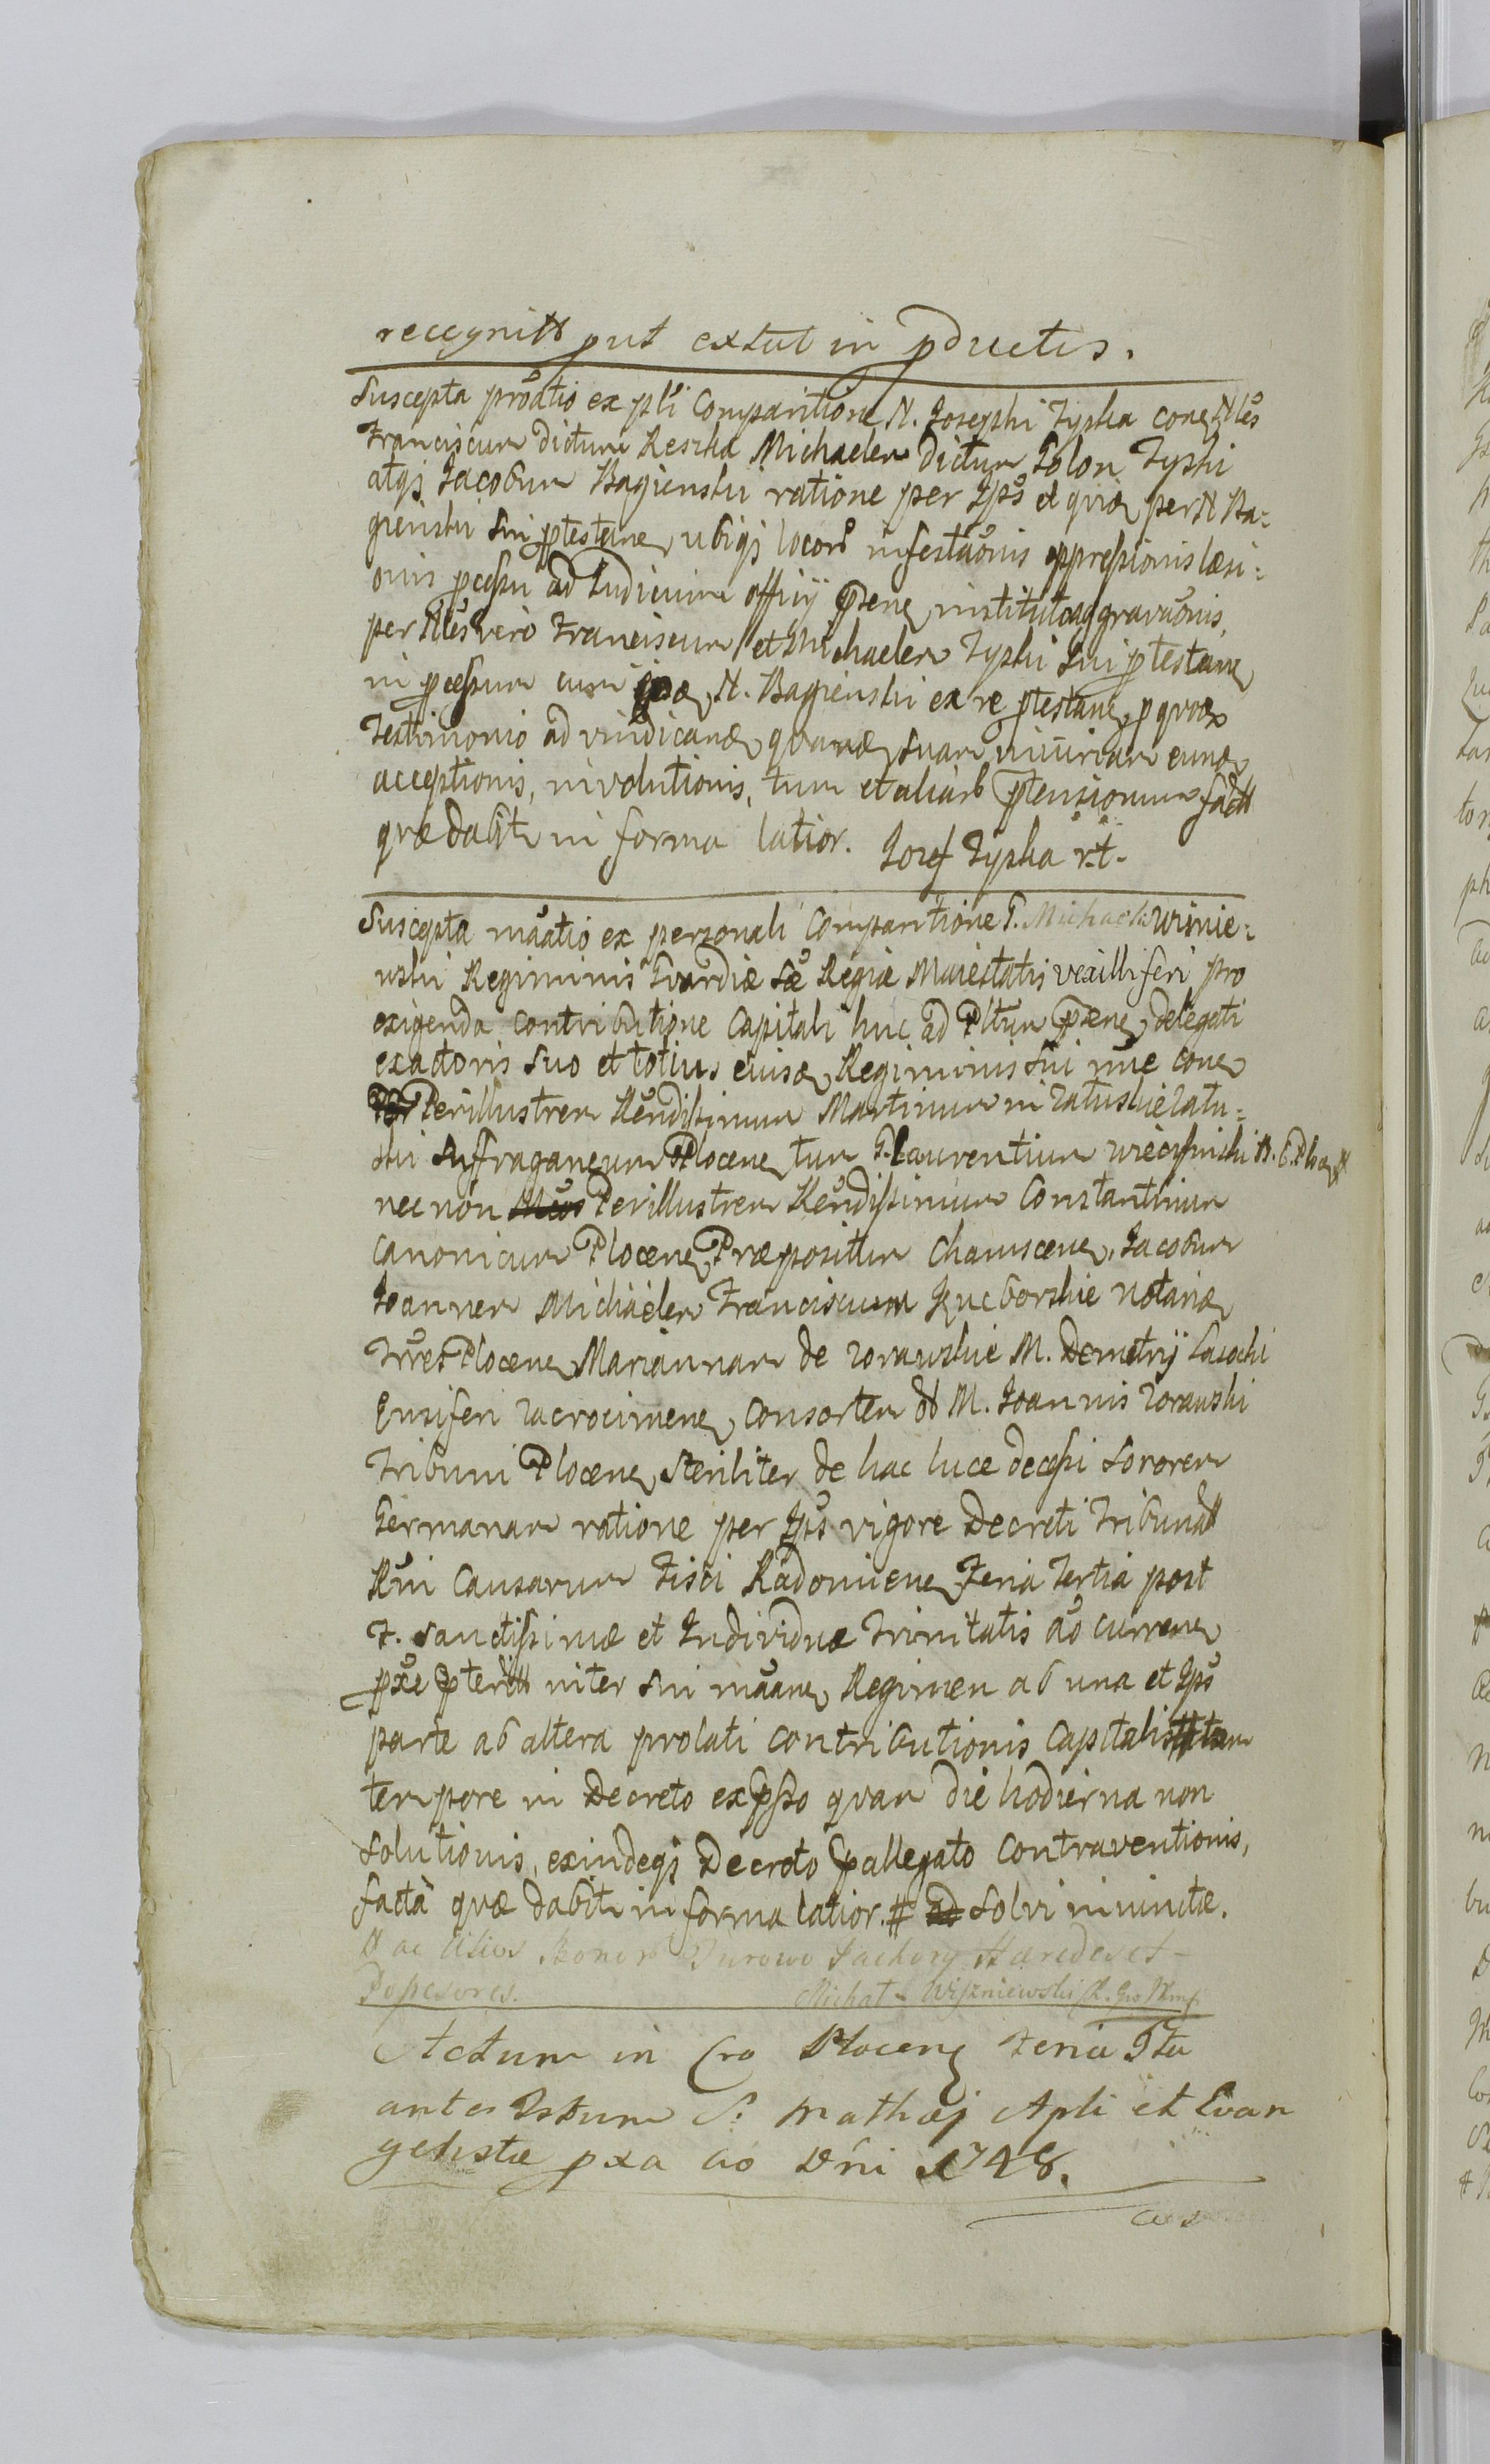 recognitt put extat in pductis.
Suscepta proatio ex pli Comparitione N. Josephi Zyska cone Nles
Franciscum dictum Reszka Michaelem dictum Golon Zyski
atqz Jacobum Bagienski ratione per Jps et quid per N Ba=
gienski Sui ptestane ubiqz locor infestaonis oppressionis læsi=
onis pcessu ad Judicium officij pten institut aggravaonis,
per Nles vero Franciscum et Michaelem Zyski Sui ptestane
in pcessum cum N. Bagienski ex re ptestane p
Testimonio ad vindicand quand suam iniuriam eund
acceptionis, involutionis, tum et aliarb ptensionum factt
quæ dabit in forma latior. Jozef Zyska r.t.
Suscepta maatio ex personali Comparitione G. Michaelis Wisnie=
wski Regiminis Gvardiæ Sæ Regiæ Maiestatis vexilliferi pro
exigenda contributione Capitali huc ad Pltum ptene delegati
exactoris suo et totius eiusd Regiminis Sui nne cone
Perillustrem Rendissimum Martinum in Zatuskie Zatu=
ski Suffraganeum Plocene tum G. Laurentium Wieczfinski B. G. Ploc
nec non Perillustrem Rendissimum Constantinum
Canonicum Plocene Præpositum Charuscene, Jacobum
Joannem Michaelem Franciscum Kucborskie notarid
Trres Plocene Mariannam de Zorawskie M. Demetrij Lasocki
Ensiferi Zacrocimene Consortem M. Joannis Zorawski
Tribuni Plocene steriliter de hac luce decessi Sororem
Germanam ratione per Jps vigore Decreti Tribunatt
Rni Causarum Fisci Radomiene Feria Tertia post
F. Sanctissimæ et Individuæ Trinitatis ao currene
pxe pteritt inter Sui maane Regimen ab una et Jps
parte ab altera prolati Contributionis Capitalis
tempore in Decreto expsso quam die hodierna non
Solutionis, exindeqz Decreto pallegato Contraventionis,
facta quæ dabit in forma latior. # Solvi iniunctæ.
# ac alios Bonor Hæredes et
Possesores. Michał Wiszniewski
Actum in Cro Plocene Feria 5ta
ante Festum S: Mathæj Apli et Evan
gelistæ pxa ao Dni 1748.